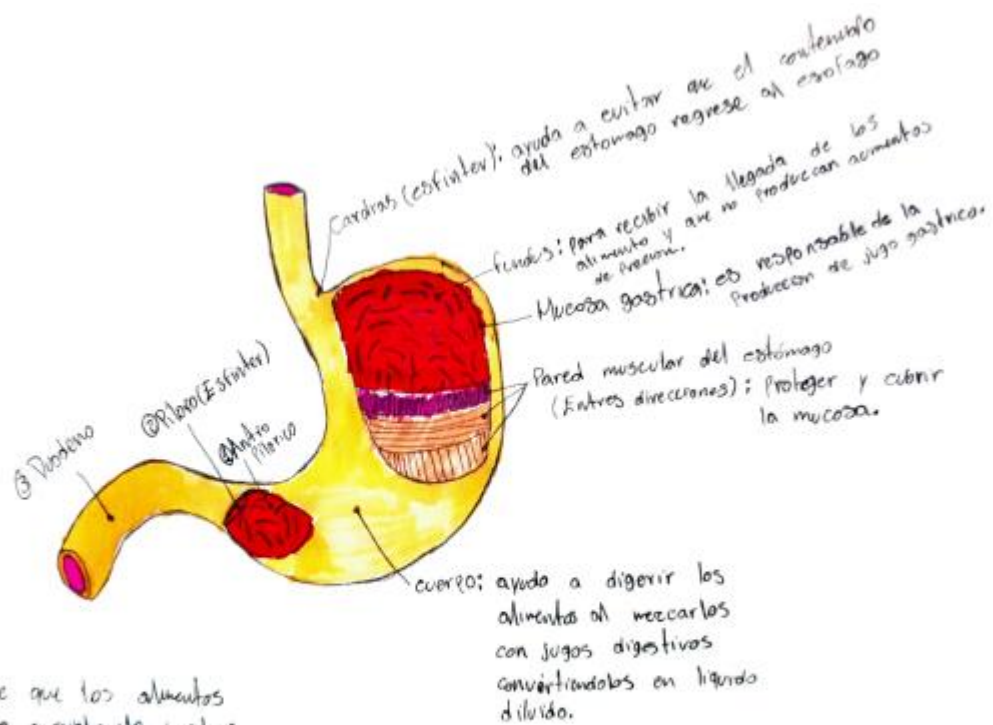 Cardias (esfinter): ayuda a evitar que el contenido
del estomago regrese al esofago
fundus: para recibir la llegada de los
alimento y que no produccan aumentos
de presion.
Mucosa gastrica: es responsable de la
Produccion de jugo gastrico.
Pared muscular del estómago
(Entres direcciones): Proteger y cubrir
la mucosa.
② Piloro (Esfinter)
Antro
Pilorico
③ Duodeno
cuerpo: ayuda a digerir los
alimentos al mezcarlos
con jugos digestivos
convirtiendolos en liquido
diluido.
que los alimentos